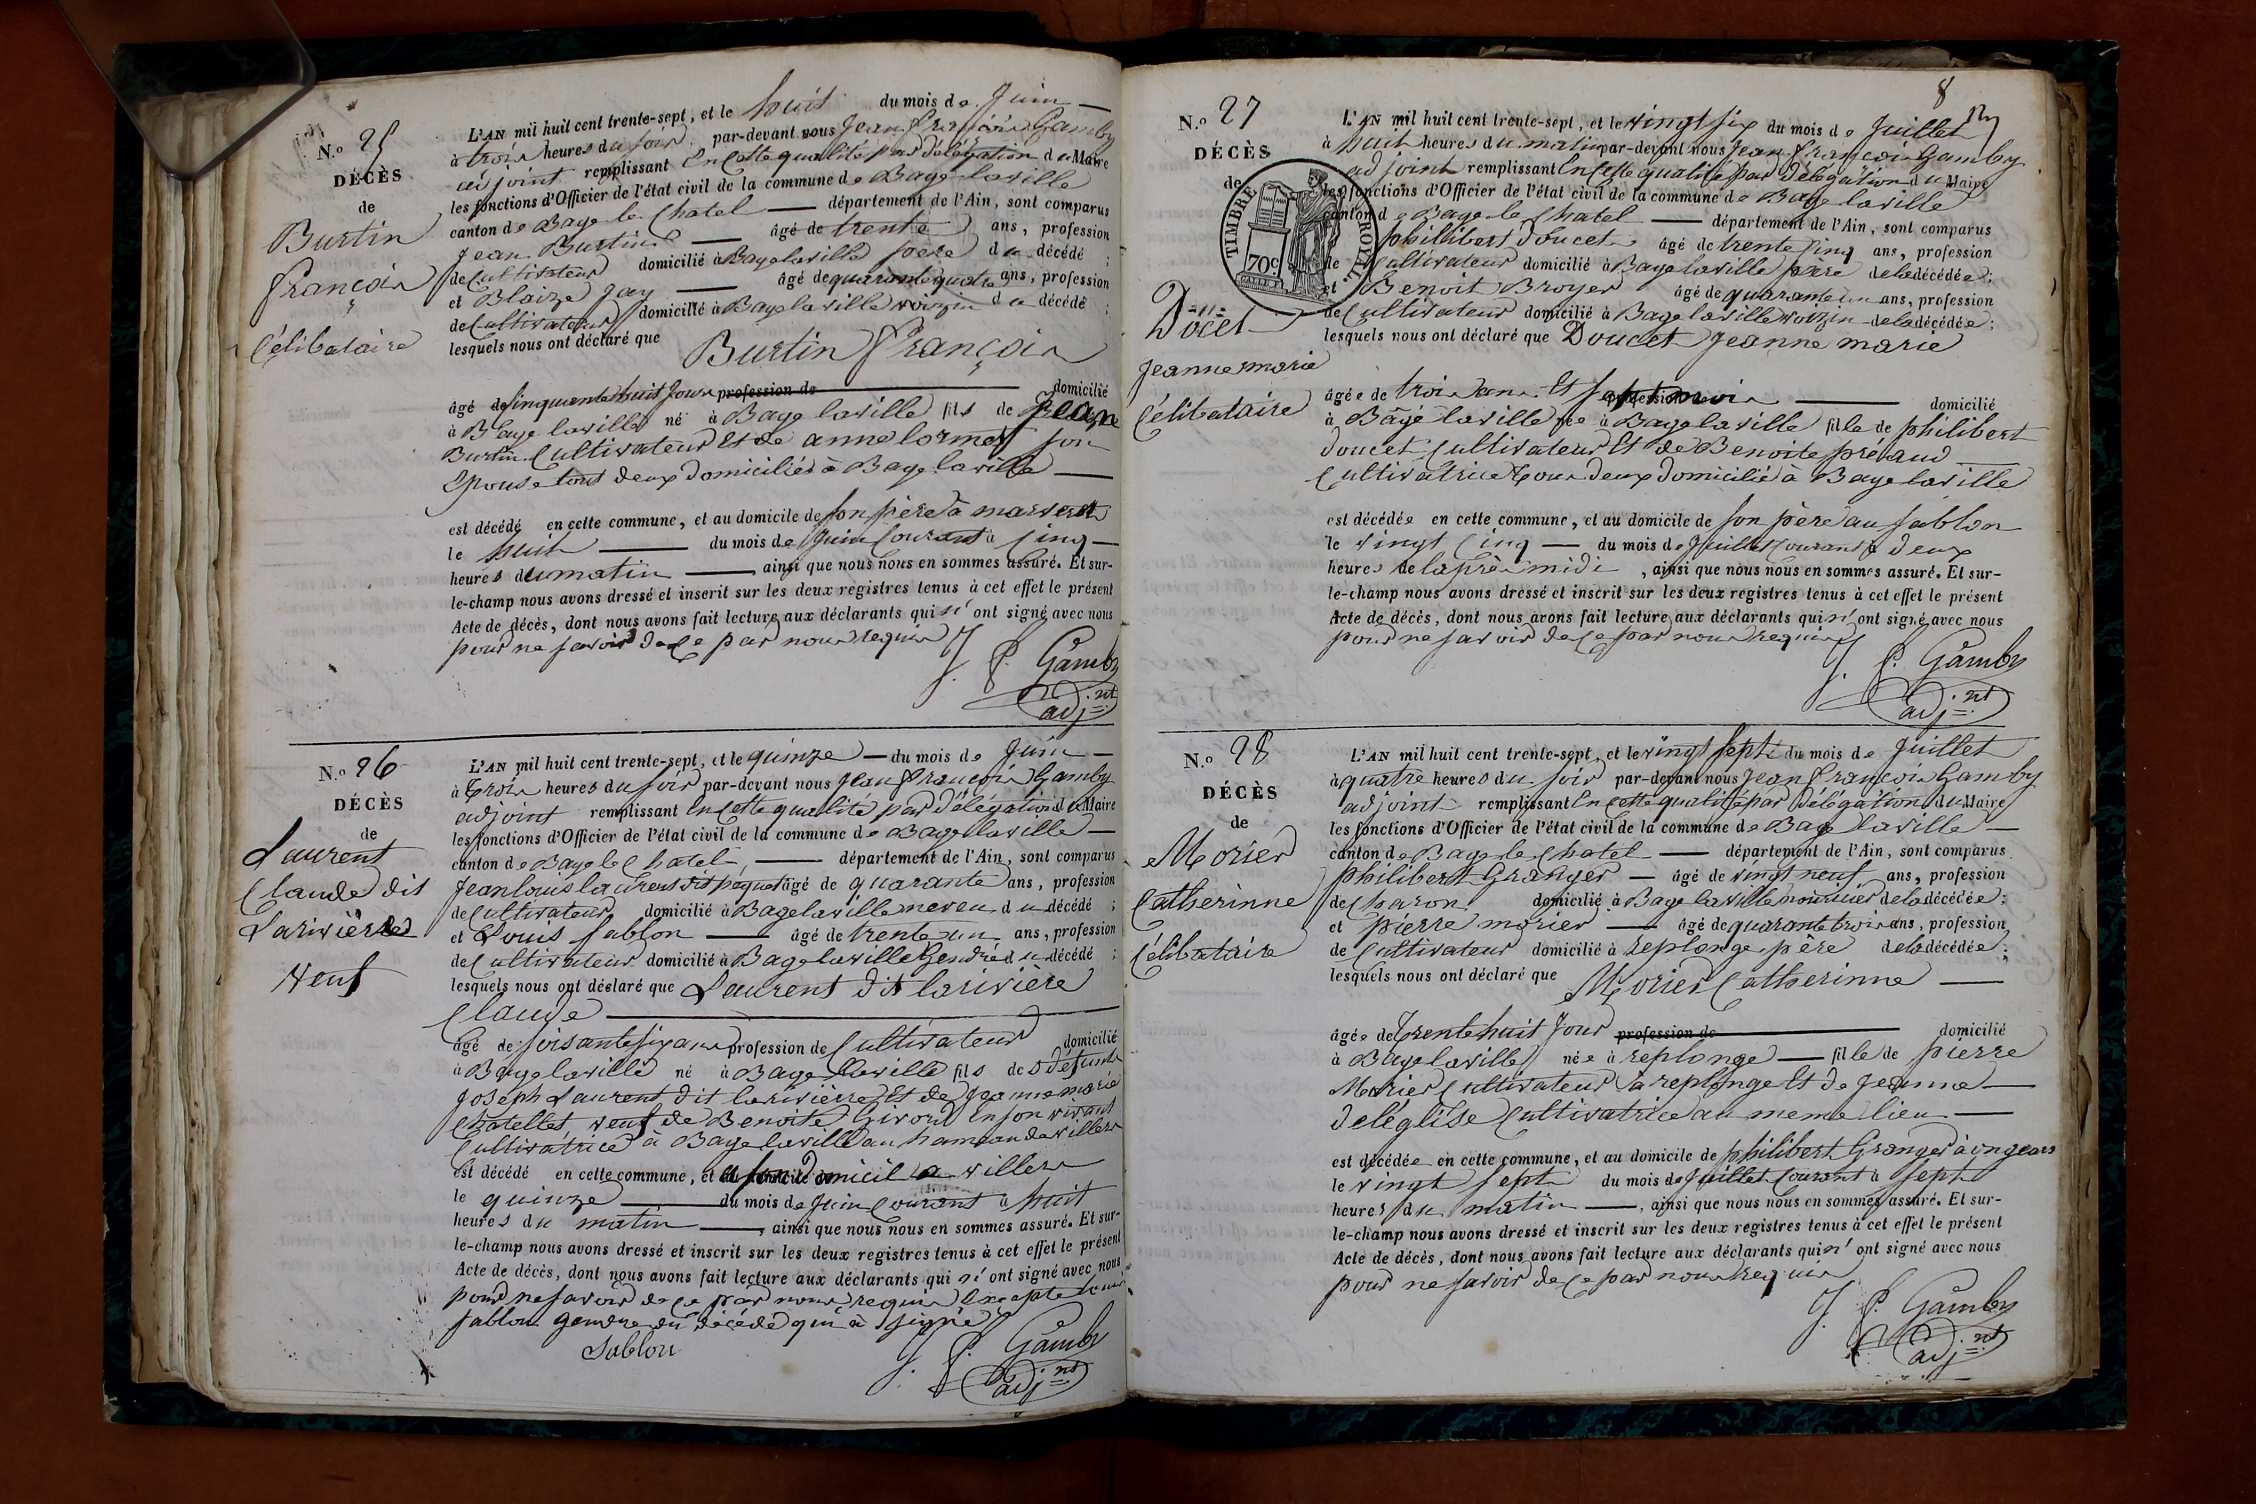 N.o 25
DÉCÈS
de
Burtin
François
Célibataire
L'AN mil huit cent trente-sept, et le huit du mois de Juin
à trois heures du soir par-devant nous Jean François Gamby
adjoint remplissant En Cette qualité par délégation du Maire
les fonctions d'Officier de l'état civil de la commune de Bage laville
canton de Bage le Chatel département de l'Ain, sont comparus
Jean Burtin âgé de trente ans, profession
de Cultivateur domicilié à Bage laville père du décédé ;
et Blaize Jay âgé de quarante quatre ans, profession
de Cultivateur domicilié à Bage laville voizin du décédé ;
lesquels nous ont déclaré que Burtin François
âgé de sinquante huit Jour profession de domicilié
à Bage laville né à Bage laville fils de Jean
Burtin Cultivateur Et de anne lormet son
Epouse tout deux domiciliés à Bage laville
est décédé en cette commune, et au domicile de son père à
le huit du mois de Juin Courant à sinq
heures du matin ainsi que nous nous en sommes assuré. Et sur-
le-champ nous avons dressé et inscrit sur les deux registres tenus à cet effet le présent
Acte de décès, dont nous avons fait lecture aux déclarants qui n' ont signé avec nous
pour ne savoir de Ce par nous requis
J. F. Gamby
adj.nt
N.o 26
DÉCÈS
de
Laurent
Claude dit
Larivière
Veuf
L'AN mil huit cent trente-sept, et le quinze du mois de Juin
à Trois heures du soir par-devant nous Jean François Gamby
adjoint remplissant En Cette qualité par délégation du Maire
les fonctions d'Officier de l'état civil de la commune de Bage laville
canton de Bage le Chatel département de l'Ain, sont comparus
Jean louis laurent dit péquet âgé de quarante ans, profession
de Cultivateur domicilié à Bage laville neveu du décédé ;
et Louis sablon âgé de trente un ans, profession
de Cultivateur domicilié à Bage laville Gendre du décédé ;
lesquels nous ont déclaré que Laurent dit larivière
Claude
âgé de soisante six ans profession de Cultivateur domicilié
à Bage laville né à Bage laville fils de défunt
Joseph Laurent dit larivière Et de Jeanne marie
Chatellet, veuf de Benoite Givord En son vivant
Cultivatrice à Bage laville au hamau de villers
est décédé en cette commune, et a son Domicil a villers
le quinze du mois de Juin Courant à huit
heures du matin, ainsi que nous nous en sommes assuré. Et sur-
le-champ nous avons dressé et inscrit sur les deux registres tenus à cet effet le présent
Acte de décès, dont nous avons fait lecture aux déclarants qui n' ont signé avec nous
pour ne savoir de Ce par nous requis Excepté Louis
sablon gendre du décédé qui à signé
Sablon
J. F. Gamby
adj.nt
8
N.o 27
DÉCÈS
de
TIMBRE ROYAL
70c
Docet
Jeanne marie
Célibataire
L'AN mil huit cent trente-sept, et le vingt six du mois de Juillet
à huit heures du matin par-devant nous Jean François Gamby
adjoint remplissant En Cette qualité par délégation du Maire
les fonctions d'Officier de l'état civil de la commune de Bage laville
canton de Bage le Chatel département de l'Ain, sont comparus
philibert doucet âgé de trente sinq ans, profession
de Cultivateur domicilié à Bage laville père de la décédée ;
et Benoit Broyer âgé de quarante un ans, profession
de Cultivateur domicilié à Bage laville voizin de la décédée ;
lesquels nous ont déclaré que Doucet Jeanne marie
âgée de trois ans Et sept mois domicilié
à Bâgé laville née à Bage laville fille de philibert
doucet Cultivateur Et de Benoite préaud
Cultivatrice Tous deux domicilié à Bage laville
est décédée en cette commune, et au domicile de son père au sablon
le vingt Cinq du mois de Juillet Courant à deux
heures de laprès midi, ainsi que nous nous en sommes assuré. Et sur-
le-champ nous avons dressé et inscrit sur les deux registres tenus à cet effet le présent
Acte de décès, dont nous avons fait lecture aux déclarants qui n' ont signé avec nous
pour ne savoir de Ce par nous requis
J. F. Gamby
adj.nt
N.o 28
DÉCÈS
de
Morier
Catherinne
Célibataire
L'AN mil huit cent trente-sept, et le vingt sept du mois de Juillet
à quatre heures du soir par-devant nous Jean François Gamby
adjoint remplissant En Cette qualité par délégation du Maire
les fonctions d'Officier de l'état civil de la commune de Bage laville
canton de Bage le Chatel département de l'Ain, sont comparus
philibert Granger âgé de vingt neuf ans, profession
de Charon domicilié à Bage laville nouricier de la décédée ;
et pierre morier âgé de quarante trois ans, profession
de Cultivateur domicilié à replonge père de la décédée ;
lesquels nous ont déclaré que Morier Catherinne
âgée de Trente huit Jour profession de domicilié
à Bage laville née à replonge fille de pierre
Morier Cultivateur à replonge Et de Jeanne
deléglise Cultivatrice au meme lieu
est décédée en cette commune, et au domicile de philibert Granger à
le vingt sept du mois de Juillet Courant à sept
heures du matin, ainsi que nous nous en sommes assuré. Et sur-
le-champ nous avons dressé et inscrit sur les deux registres tenus à cet effet le présent
Acte de décès, dont nous avons fait lecture aux déclarants qui n' ont signé avec nous
pour ne savoir de Ce par nous requis
J. F. Gamby
adj.nt